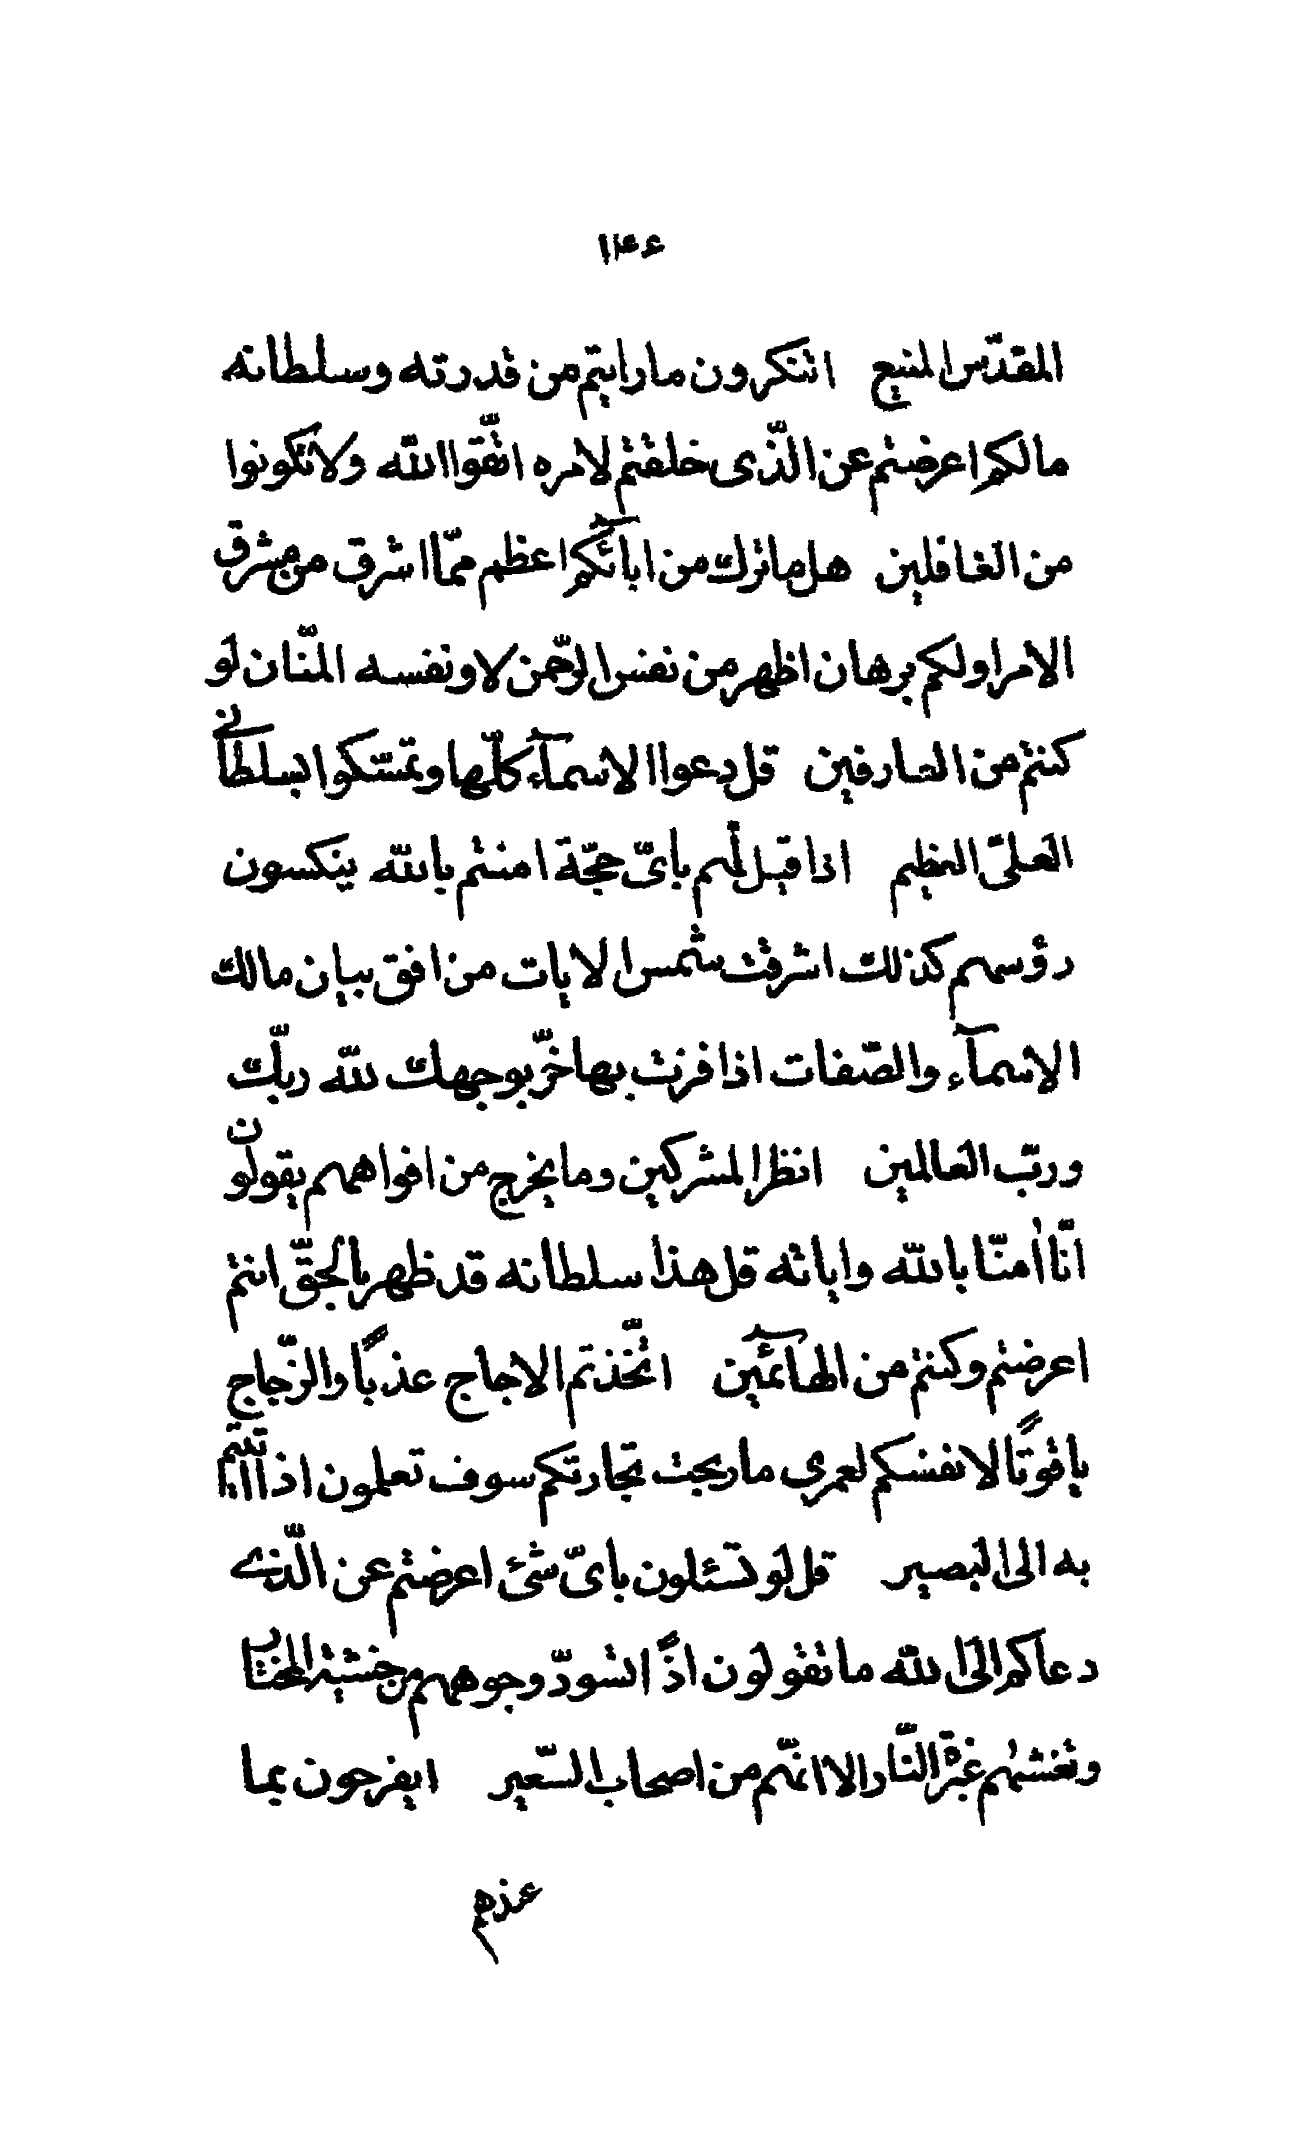 ١٣۶
المقدّس المنيع اتنكرون ما رايتم من قدرته و سلطانه
ما لكم اعرضتم عن الّذى خلقتم لامره اتّقوا اللّه و لا تكونوا
من الغافلين هل ما ترك من ابآئكم اعظم ممّا اشرق من مشرق
الامر او لكم برهان اظهر من نفس الرّحمن لا و نفسه المنّان لو
كنتم من العارفين قل دعوا الاسمآء كلّها و تمسّكوا بسلطانى
العلىّ العظيم اذا قيل لهم باىّ حجّة امنتم باللّه ينكسون
رؤسهم كذلك اشرقت شمس الايات من افق بيان مالك
الاسمآء و الصّفات اذا فزت بها خرّ بوجهك للّه ربّك
و ربّ العالمين انظر المشركين و ما يخرج من افواههم يقولون
انّا امنّا باللّه و اياته قل هذا سلطانه قد ظهر بالحقّ انتم
اعرضتم و كنتم من الهآئمين اتّخذتم الاجاج عذبًا و الزّجاج
ياقوتًا لانفسكم لعمرى ما ربحت تجارتكم سوف تعلمون اذا اتيتم
به الى البصير قل لو تسئلون باىّ شئ اعرضتم عن الّذى
دعاكم الى اللّه ما تقولون اذًا تسودّ وجوههم من خشية المختار
و تغشيهم غبرة النّار الا انّهم من اصحاب السّعير ايفرحون بما
عندهم